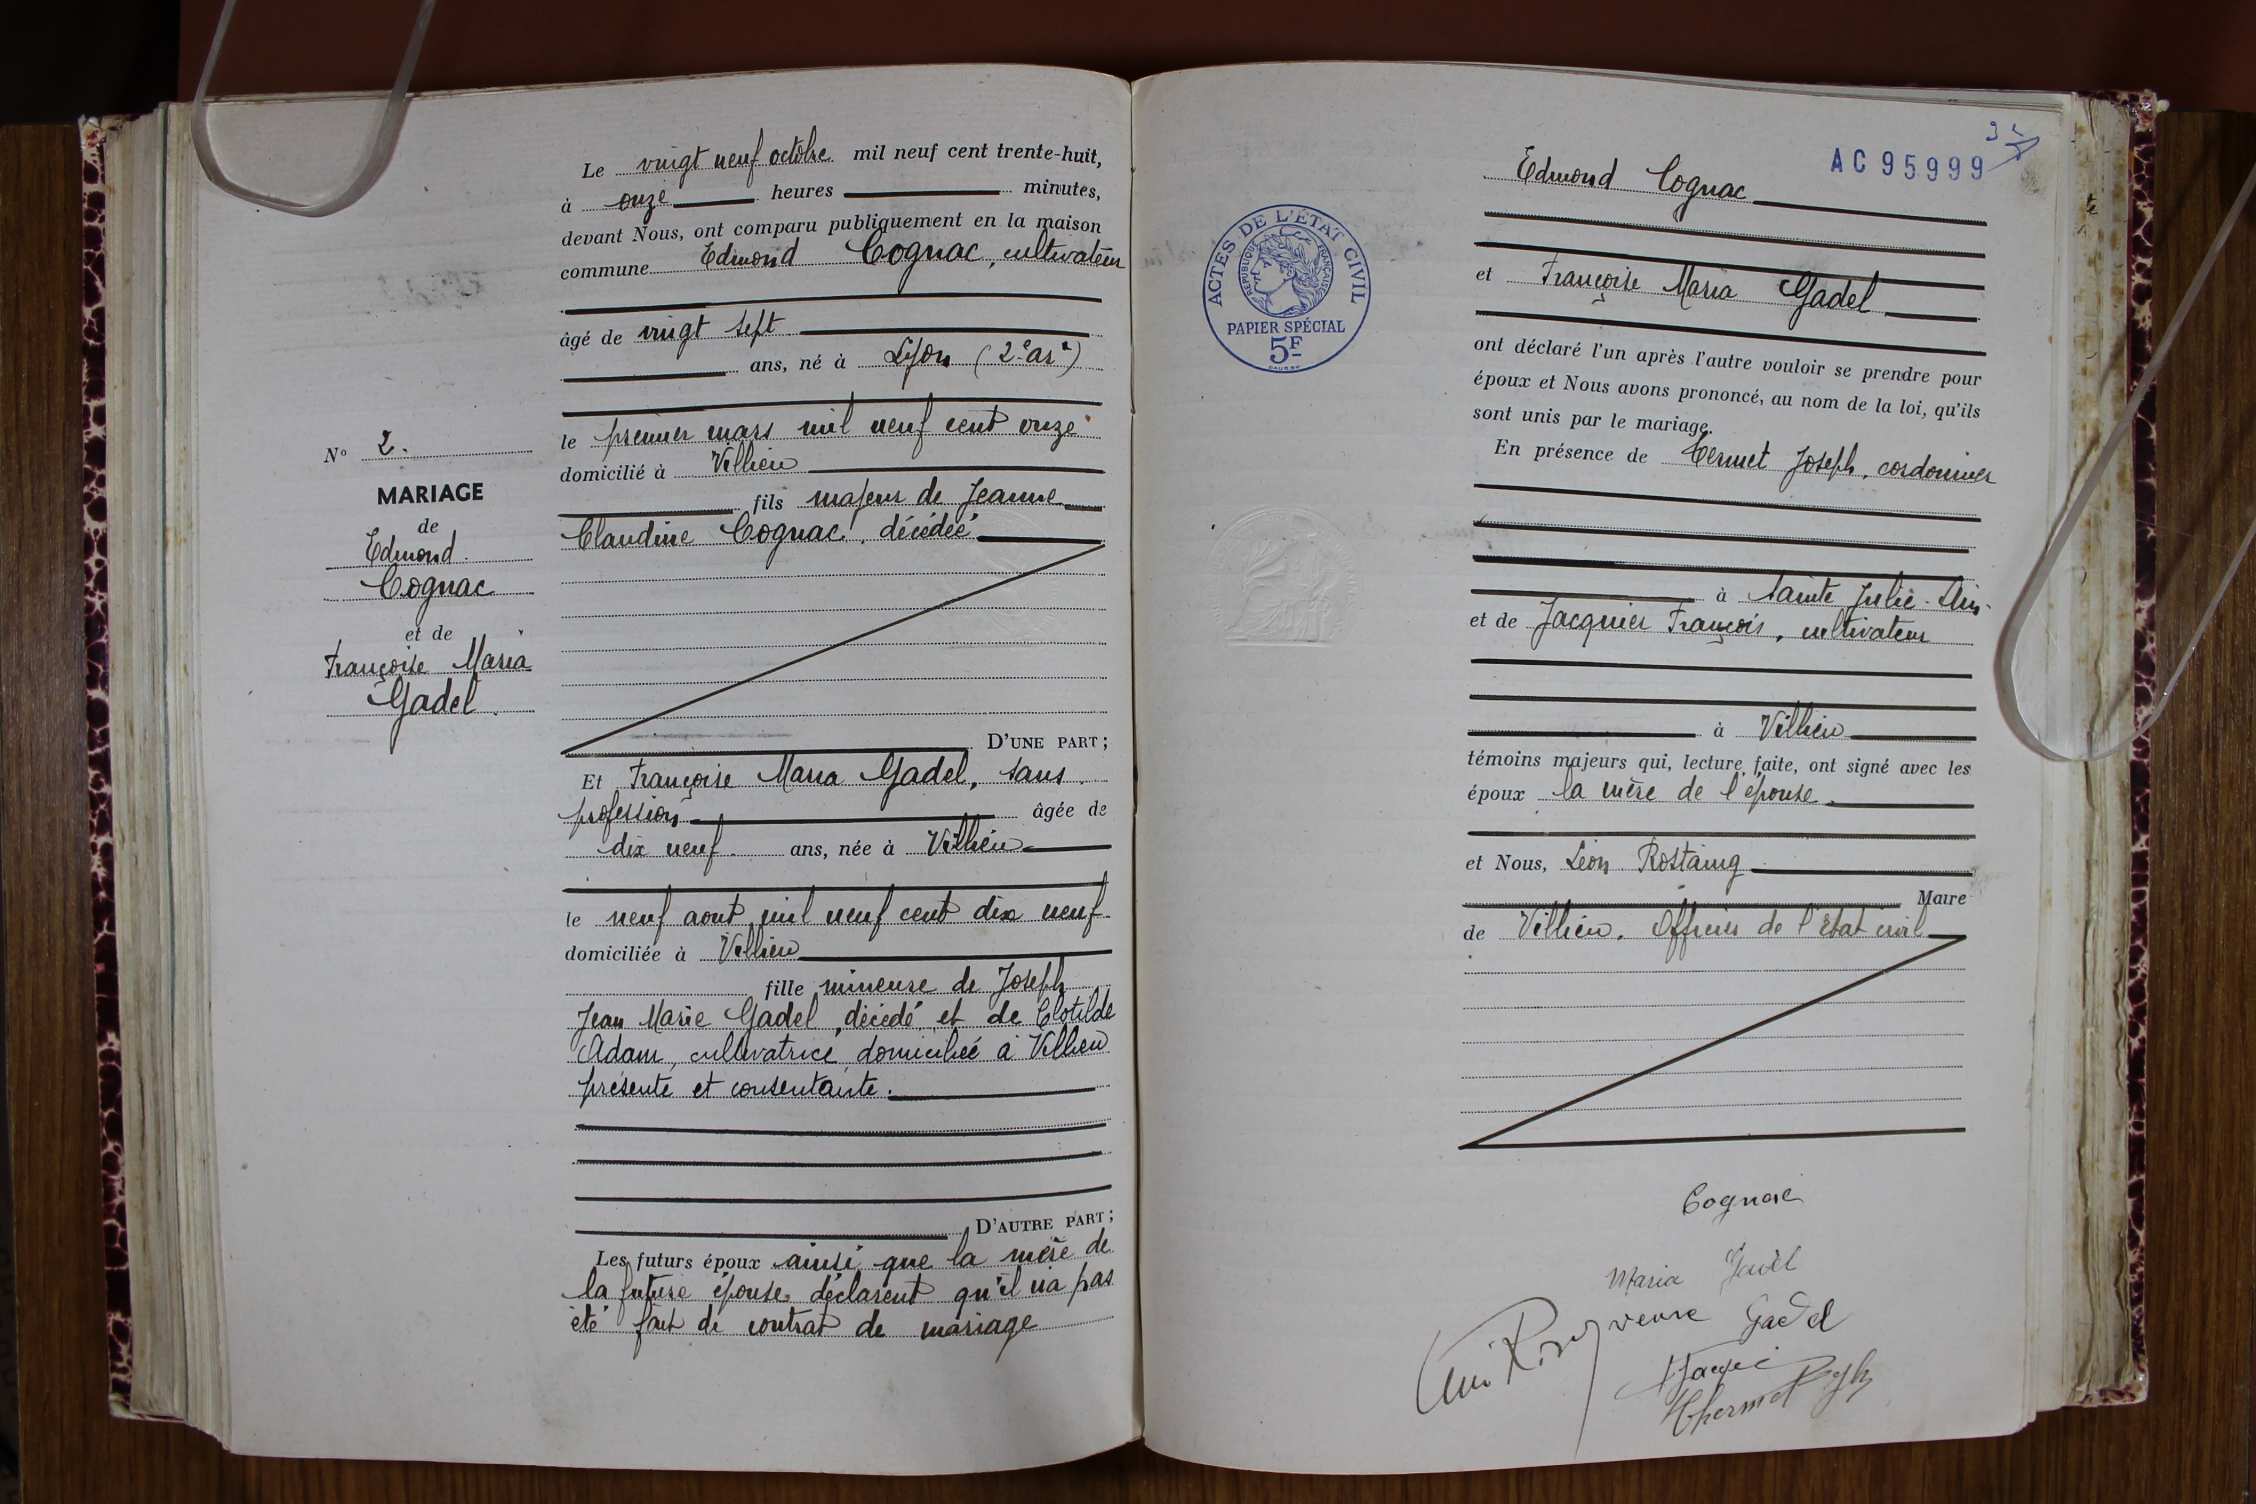 N° 2.
MARIAGE
de
Edmond
Cognac
et de
Françoise Maria
Gadel
Le vingt neuf octobre mil neuf cent trente-huit,
à onze heures minutes,
devant Nous, ont comparu publiquement en la maison
commune Edmond Cognac, cultivateur
âgé de vingt sept
ans, né à Lyon (2e ar.t)
le premier mars mil neuf cent onze
domicilié à Villieu
fils majeur de Jeanne
Claudine Cognac, décédée
D'UNE PART ;
Et Françoise Maria Gadel, sans
profession âgée de
dix neuf ans, née à Villieu
le neuf aout mil neuf cent dix neuf
domiciliée à Villieu
fille mineure de Joseph
Jean Marie Gadel, décédé et de Clotilde
Adam, cultivatrice, domiciliée à Villieu
présente et consentante.
D'AUTRE PART ;
Les futurs époux ainsi que la mère de
la future épouse déclarent qu'il n'a pas
été fait de contrat de mariage
AC95999
ACTES DE L'ÉTAT CIVIL
RÉPUBLIQUE FRANÇAISE
PAPIER SPÉCIAL
5F
Edmond Cognac
et Françoise Maria Gadel
ont déclaré l'un après l'autre vouloir se prendre pour
époux et Nous avons prononcé, au nom de la loi, qu'ils
sont unis par le mariage.
En présence de Termet Joseph, cordonnier
à Sainte Julie - Ain -
et de Jacquier François, cultivateur
à Villieu
témoins majeurs qui, lecture faite, ont signé avec les
époux la mère de l'épouse
et Nous, Léon Rostaing
Maire
de Villieu. Officier de l'état civil
Cognac
Maria Gadel
veuve Gadel